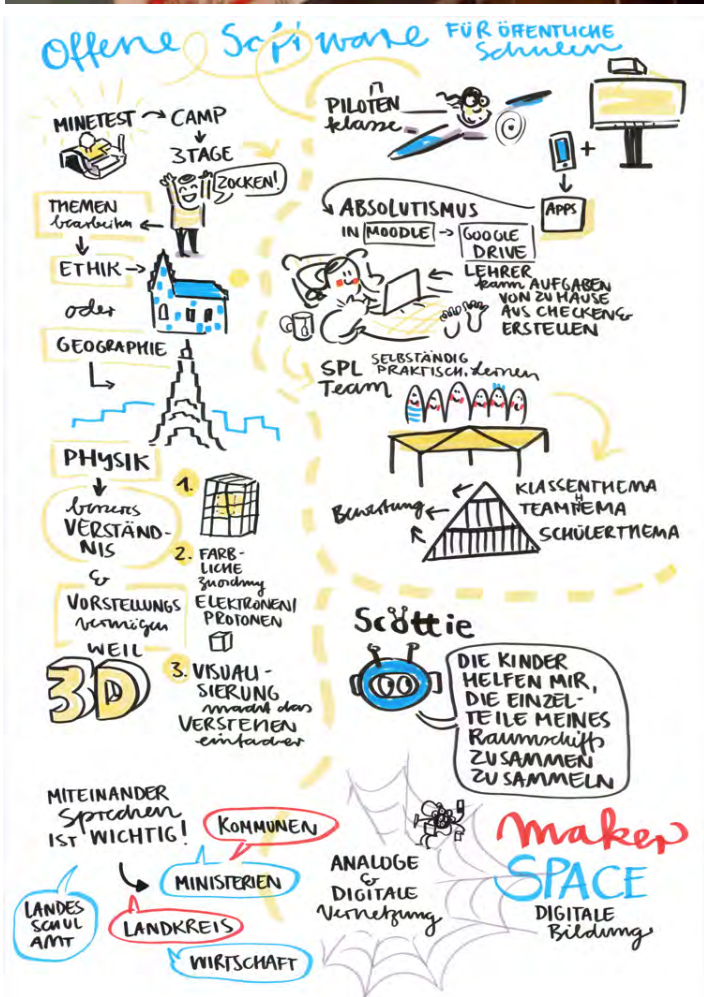 Offene Software FÜR ÖFFENTLICHE
Schulen
MINETEST → CAMP
3 TAGE
ZOCKEN!
THEMEN
bearbeiten
ETHIK →
oder
GEOGRAPHIE
PHYSIK
besseres
VERSTÄND-
NIS
&
VORSTELLUNGS
vermögen
WEIL
3D
1.
2. FARB-
LICHE
Zuordnung
ELEKTRONEN/
PROTONEN
3. VISUALI-
SIERUNG
macht das
VERSTEHEN
einfacher
PILOTEN
klasse
+
APPS
ABSOLUTISMUS
IN MOODLE → GOOGLE
DRIVE
LEHRER
kann AUFGABEN
VON ZU HAUSE
AUS CHECKEN &
ERSTELLEN
SPL SELBSTÄNDIG
PRAKTISCH. Lernen
Team
KLASSENTHEMA
TEAMTHEMA
SCHÜLERTHEMA
Bewertung
Scottie
DIE KINDER
HELFEN MIR,
DIE EINZEL-
TEILE MEINES
Raumschiffs
ZUSAMMEN
ZU SAMMELN
MITEINANDER
Sprechen
IST WICHTIG!
KOMMUNEN
MINISTERIEN
LANDES
SCHUL
AMT
LANDKREIS
WIRTSCHAFT
ANALOGE
&
DIGITALE
Vernetzung
maker
SPACE
DIGITALE
Bildung